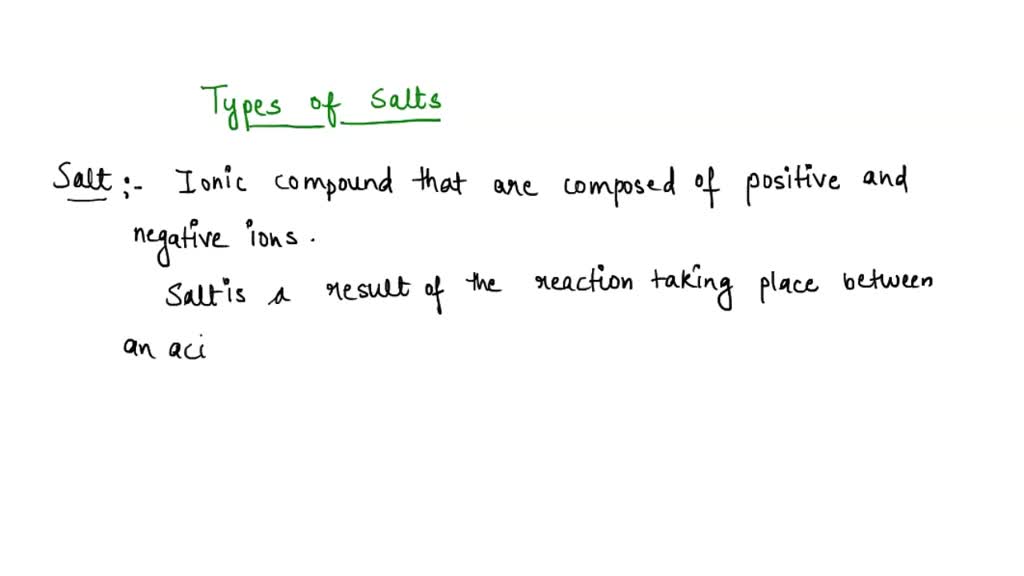 Types of Salts
Salt :- Ionic compound that are composed of positive and
negative ions.
Salt is a result of the reaction taking place between
an aci